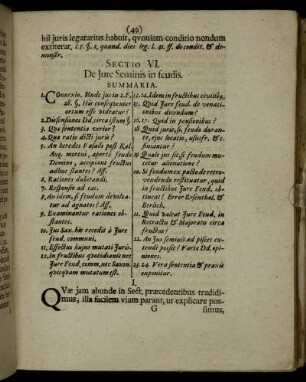 (49)
hil juris legatarius habuit, quoniam conditio nondum
extiterat, l. 5. §. 2. quand. dies leg. l. 41. ff. de condit. & de-
monstr.
SECTIO VI.
De Jure Seminis in feudis.
SUMMARIA.
1. Connexio. Unde jus in 2. F.
28. §. Hic consequenter
ortum esse videatur?
2. Dissensiones Dd. circa istum §
3. Quæ sententia verior?
4. Quæ ratio dicti juris?
5. An heredes Vasalli post Kal.
Aug. mortui, aperto feudo
Domino, accipiant fructus
adhuc stantes? Aff.
6. Rationes dubitandi.
7. Responsio ad eas.
8. An idem, si feudum devolva-
tur ad agnatos? Aff.
9. Examinantur rationes ob-
stantes.
10. Jus Sax. hin recedit à Jure
feud. communi.
11. Effectus hujus mutati Juris.
12. In fructibus quotidianis nec
Jure Feud. comm. nec Saxon.
quicquam mutatum est.
14. Idem in fructibus civilib9.
15. Quid Jure feud. de venati-
onibus dicendum?
16. 17. Quid in pensionibus?
18. Quid juris, si, feudo duran-
te, ejus locatio, usufr. & c.
finiantur?
19. Quid si feudum mu-
tetur alienatione?
20. Si feudum ex pacto de retro-
vendendo restituatur, quid
in fructibus Jure Feud. ob-
tineat? Error Rosenthal. &
Berlich.
21. Quod valeat Jure Feud. in
Retractu & Majoratu circa
fructus?
22. An Jus seminis ad pisces ex-
tendi possit? Variæ Dd. opi-
niones.
23. 24. Vera sententia & praxis
exponitur.
I.
Quæ jam abunde in Sect. præcedentibus tradidi-
mus, illa facilem viam parant, ut explicare pos-
G
simus,